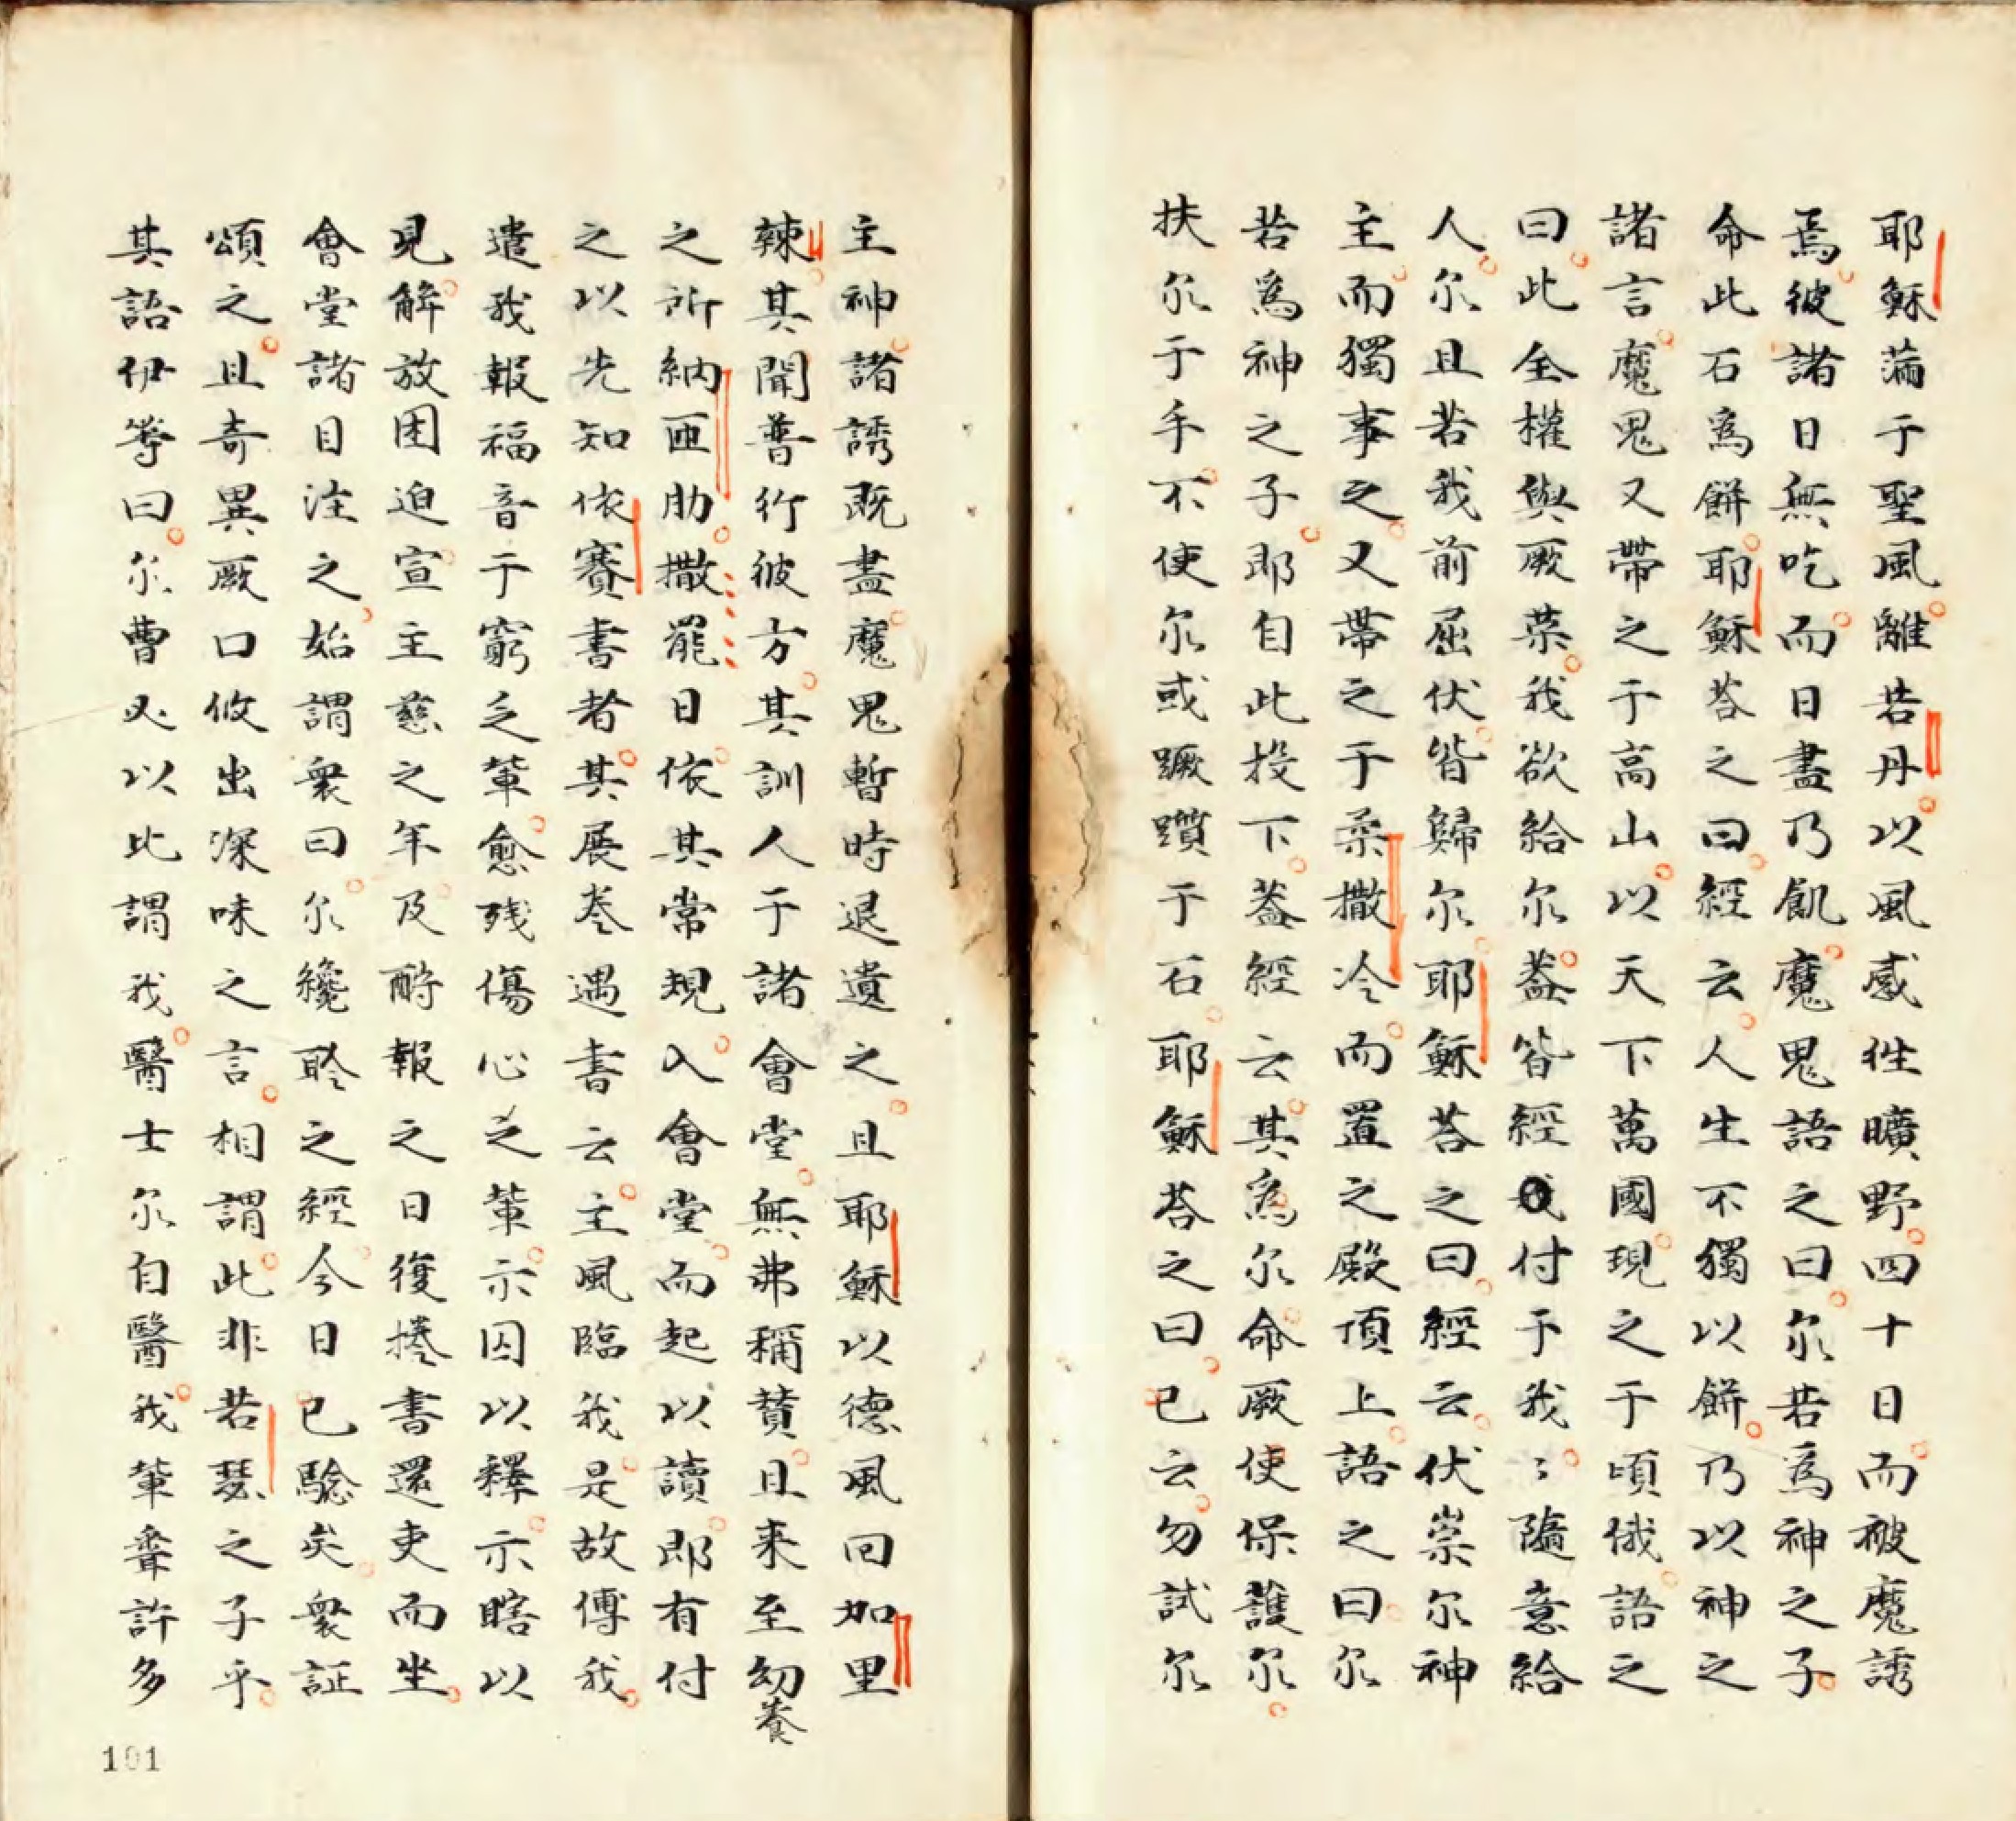 耶穌滿于聖風離若丹以風感徃曠野四十日而被魔誘
焉彼諸日無吃而日盡乃飢魔鬼語之曰尔若為神之子
命此石為餅耶穌荅之曰經云人生不獨以餅乃以神之
諸言魔鬼又帶之于高山以天下萬國現之于頃俄語之
曰此全權與厥荣我欲給尔葢皆經付于我〻隨意給
人尔且若我前屈伏皆歸尔耶穌荅之曰經云伏崇尔神
主而獨事之又帶之于柔撒冷而置之殿頂上語之曰尔
若為神之子即自此投下葢經云其為尔命厥使保護尔
扶尔于手不使尔或蹶躓于石耶穌荅之曰已云勿試尔
主神諸誘既盡魔鬼暫時退遺之且耶穌以德風囘加里
辣其聞普行彼方其訓人于諸會堂無弗稱賛且来至幼養
之所納匝肋撒罷日依其常規入會堂而起以讀即有付
之以先知依賽書者其展卷遇書云主風臨我是故傅我
遣我報福音于窮乏輩愈残傷心之輩示囚以釋示瞎以
見解放困迫宣主慈之年及酧報之日復捲書還吏而坐
會堂諸目注之始謂衆曰尔纔聆之經今日已驗矣衆証
頌之且奇異厥口攸出深味之言相謂此非若瑟之子乎
其語伊等曰尔曹必以此謂我醫士尔自醫我輩聞許多
101